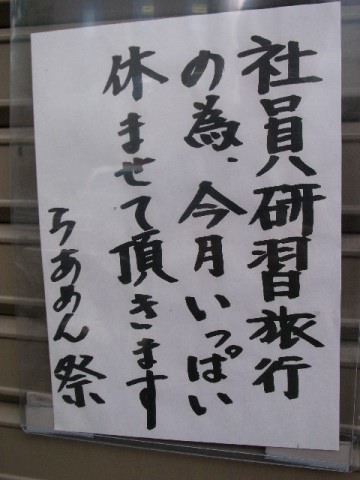 社員研習旅行
の為、今月いっぱい
休ませて頂きます
らあめん祭